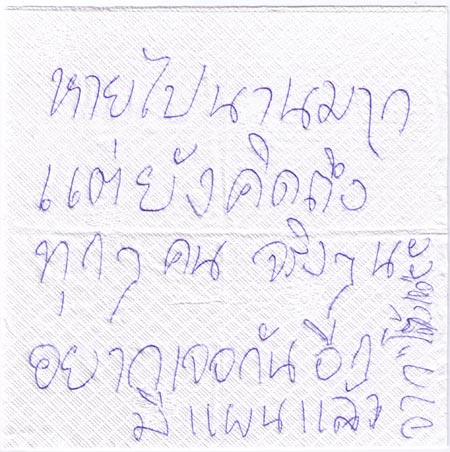 หายไปนานมาก
แต่ยังคิดถึง
ทุกๆ คน จริงๆ นะ
อยากเจอกันอีก
มีแผนแล้ว
จาก